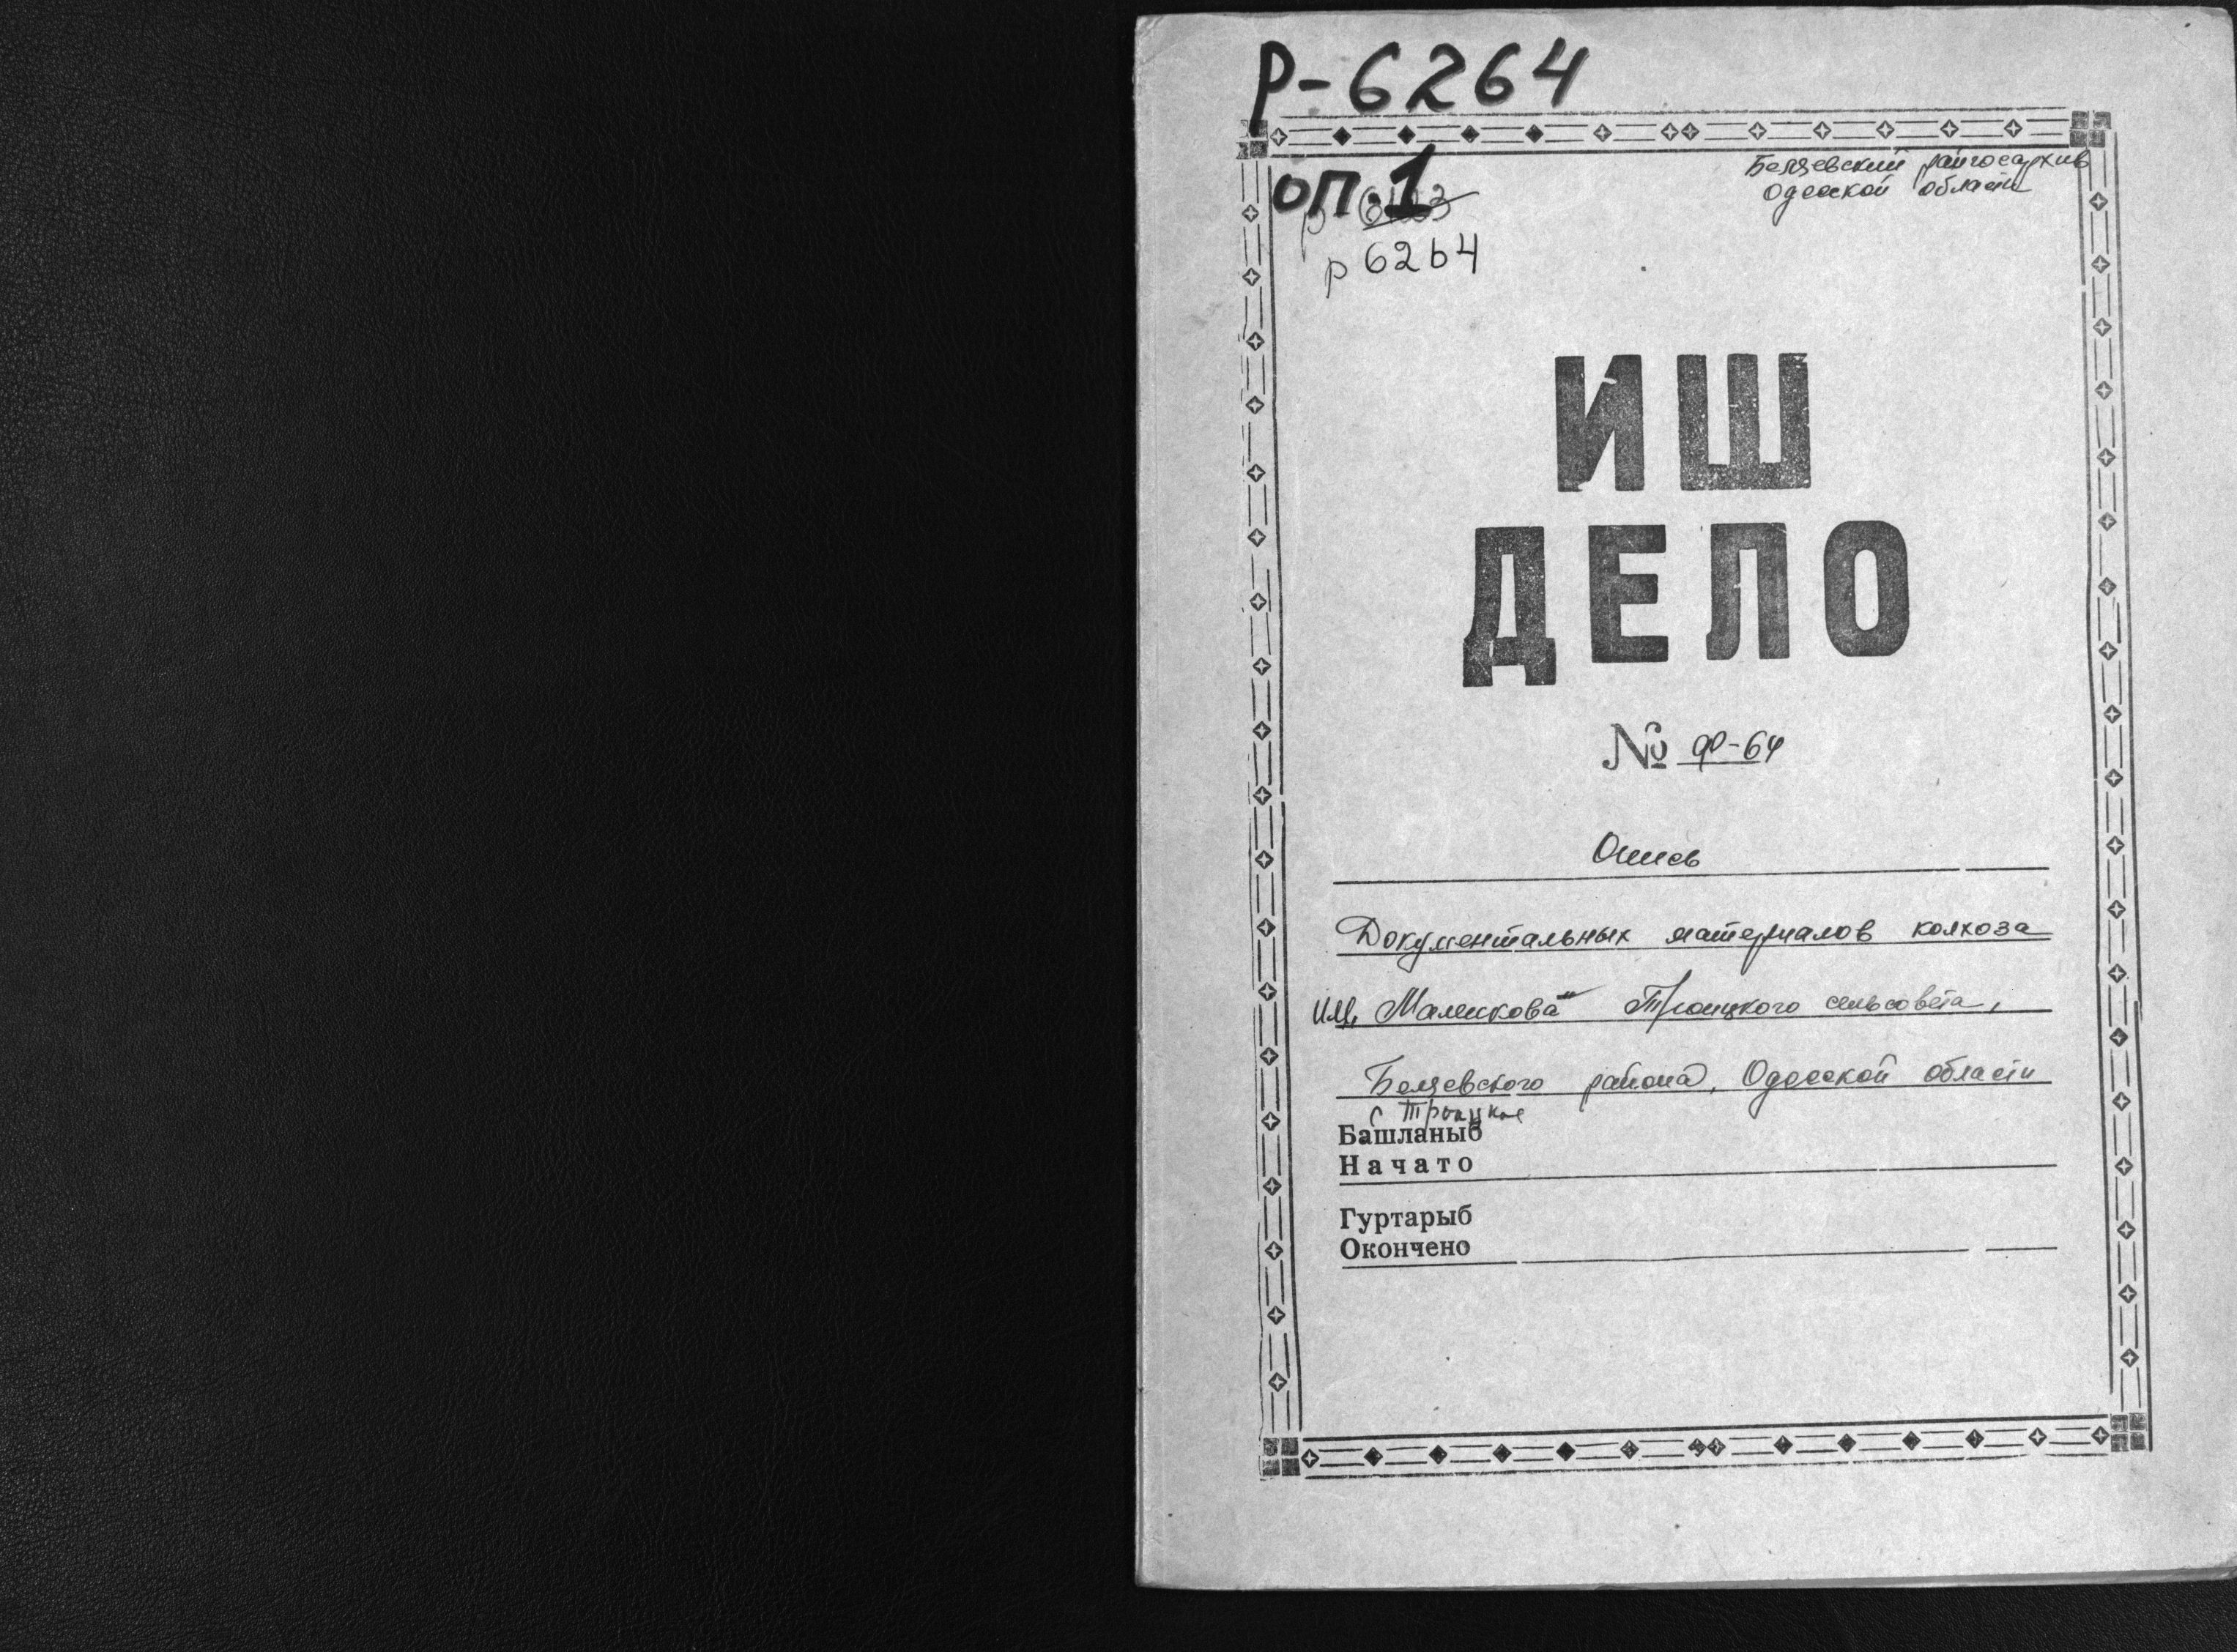 Р-6264
оп.1
Беляевский райгосархив
Одесской области
р 6264
ИШ
ДЕЛО
№ Ф-64
Опись
Документальных материалов колхоза
им. Маленкова" Троицкого сельсовета,
Беляевского района, Одесской области
с Троицкое
Башланыб
Начато
Гуртарыб
Окончено